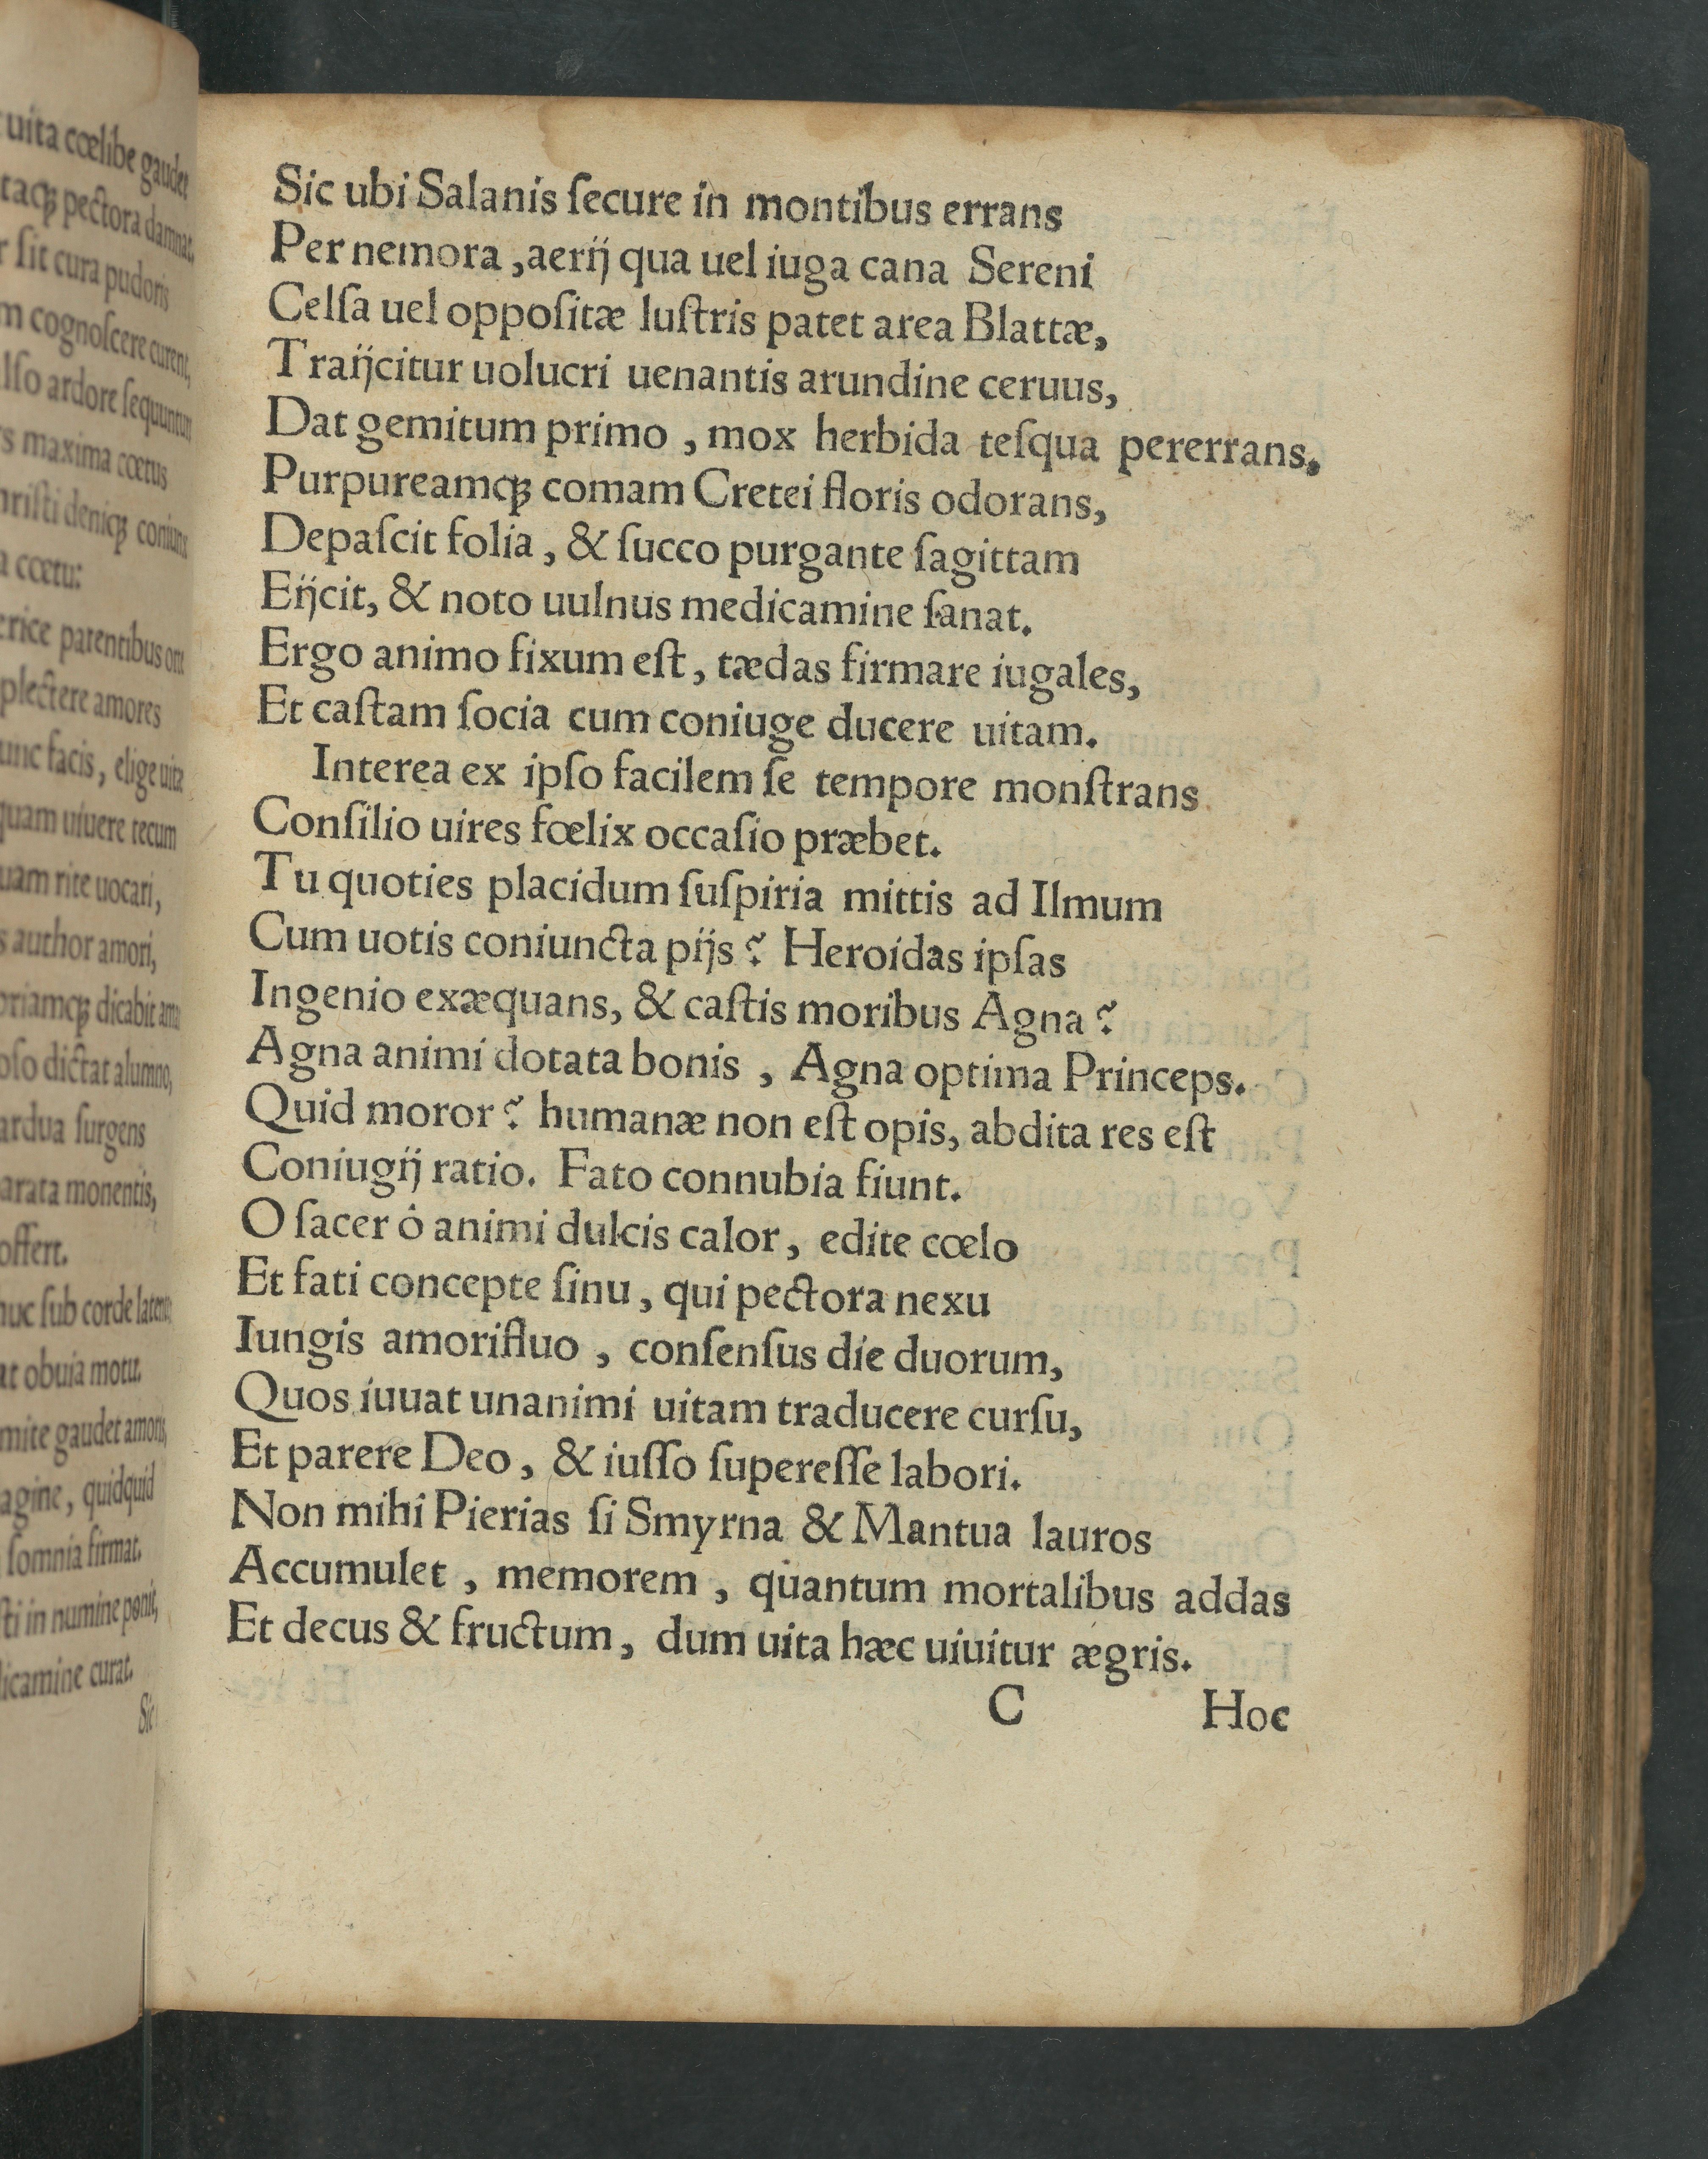 uita cœlibe gaudet
tacqꝫ pectora damnat.
sit cura pudoris
m cognoſcere curent,
lſo ardore ſequuntur
s maxima cœtus
hriſti deniqꝫ coniunx
a cœtu:
erice parentibus ort
plectere amores
unc facis, elige uitæ
quam uiuere tecum
uam rite uocari,
s author amori,
oriamqꝫ dicabit
oſo dictat alumno,
ardua ſurgens
arata monentis,
offert.
huc ſub corde latent
at obuia motu.
mite gaudet amoris,
agine, quidquid
ſomnia firmat.
ſti in numine ponit,
dicamine curat.
Sic
Sic ubi Salanis ſecure in montibus errans
Per nemora ,aerij qua uel iuga cana Sereni
Celſa uel oppoſitæ luſtris patet area Blattæ,
Traijcitur uolucri uenantis arundine ceruus,
Dat gemitum primo , mox herbida teſqua pererrans,
Purpureamqꝫ comam Cretei floris odorans,
Depaſcit folia , & ſucco purgante ſagittam
Eijcit, & noto uulnus medicamine ſanat.
Ergo animo fixum eſt , tædas firmare iugales,
Et caſtam ſocia cum coniuge ducere uitam.
Interea ex ipſo facilem ſe tempore monſtrans
Conſilio uires fœlix occaſio præbet.
Tu quoties placidum ſuſpiria mittis ad Ilmum
Cum uotis coniuncta pijs ? Heroidas ipſas
Ingenio exæquans, & caſtis moribus Agna ?
Agna animi dotata bonis , Agna optima Princeps.
Quid moror ? humanæ non eſt opis, abdita res eſt
Coniugij ratio. Fato connubia fiunt.
O ſacer ô animi dulcis calor , edite cœlo
Et fati concepte ſinu , qui pectora nexu
Iungis amorifluo , conſenſus die duorum,
Quos iuuat unanimi uitam traducere curſu,
Et parere Deo , & iuſſo ſupereſſe labori.
Non mihi Pierias ſi Smyrna & Mantua lauros
Accumulet , memorem , quantum mortalibus addas
Et decus & fructum , dum uita hæc uiuitur ægris.
C Hoc